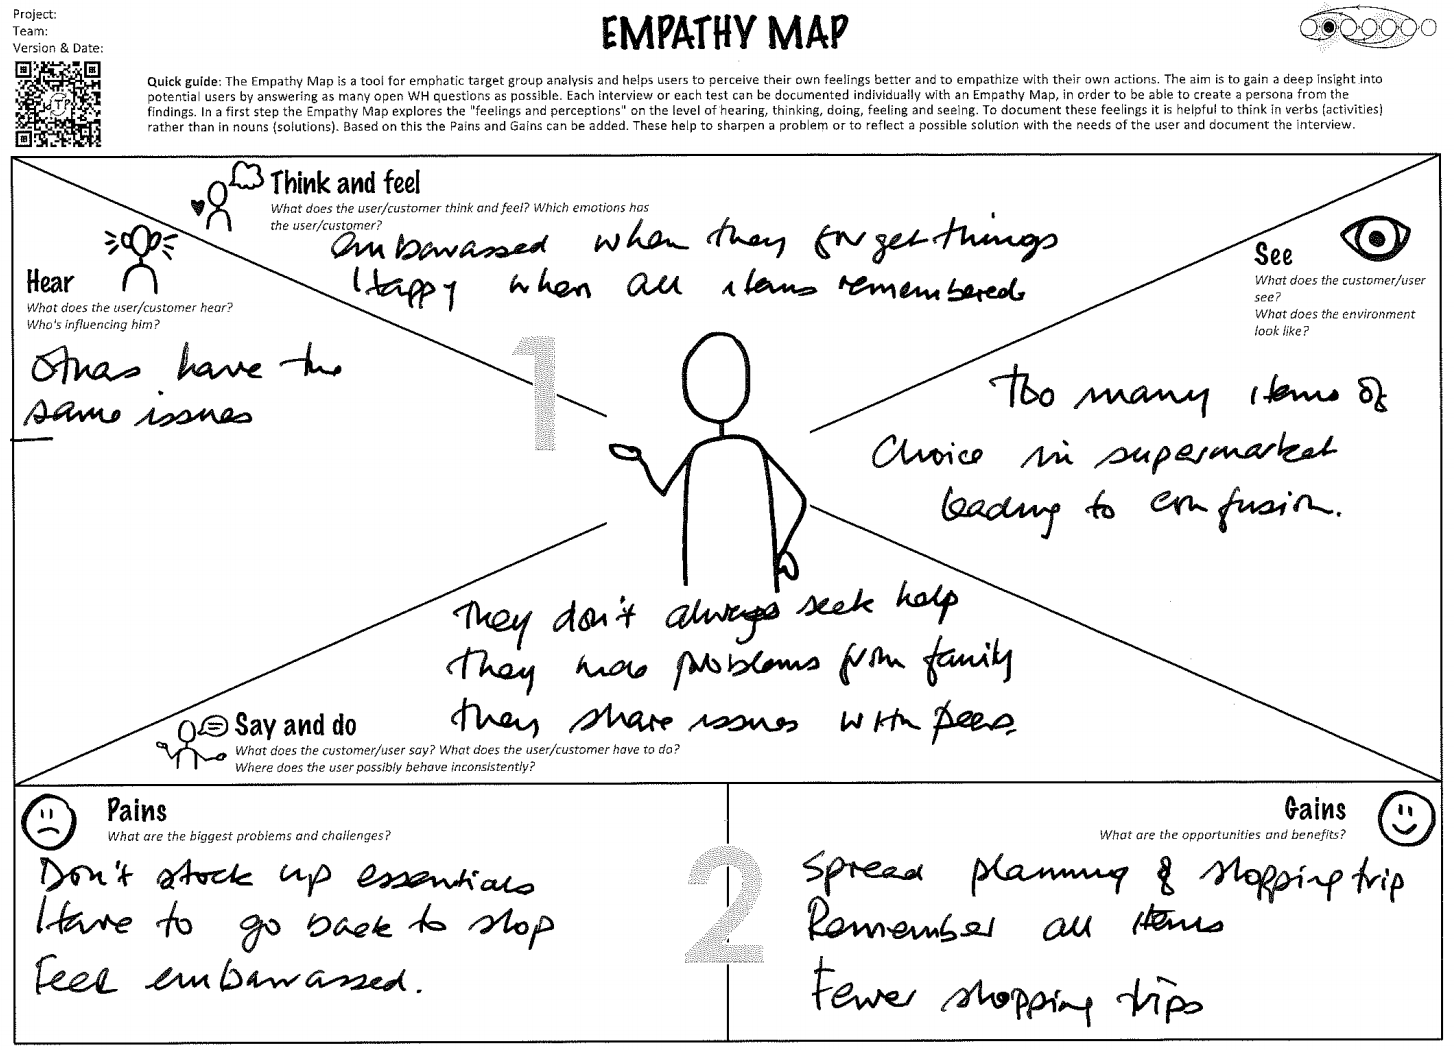 Project:
Team:
Version & Date:
EMPATHY MAP
Quick guide: The Empathy Map is a tool for emphatic target group analysis and helps users to perceive their own feelings better and to empathize with their own actions. The aim is to gain a deep insight into
potential users by answering as many open WH questions as possible. Each interview or each test can be documented individually with an Empathy Map, in order to be able to create a persona from the
findings. In a first step the Empathy Map explores the "feelings and perceptions" on the level of hearing, thinking, doing, feeling and seeing. To document these feelings it is helpful to think in verbs (activities)
rather than in nouns (solutions). Based on this the Pains and Gains can be added. These help to sharpen a problem or to reflect a possible solution with the needs of the user and document the interview.
Think and feel
What does the user/customer think and feel? Which emotions has
the user/customer?
Embarrassed when they forget things
Happy when all items remembered
Hear
What does the user/customer hear?
Who's influencing him?
Others have the
same issues
See
What does the customer/user
see?
What does the environment
look like?
Too many items of
Choice in supermarket
leading to confusion.
1
They don't always seek help
They problems from family
they share issues with peers.
Say and do
What does the customer/user say? What does the user/customer have to do?
Where does the user possibly behave inconsistently?
Pains
What are the biggest problems and challenges?
Don't stock up essentials
Have to go back to shop
Feel embarrassed.
2
Gains
What are the opportunities and benefits?
Spread planning & shopping trip
Remember all items
Fewer shopping trips